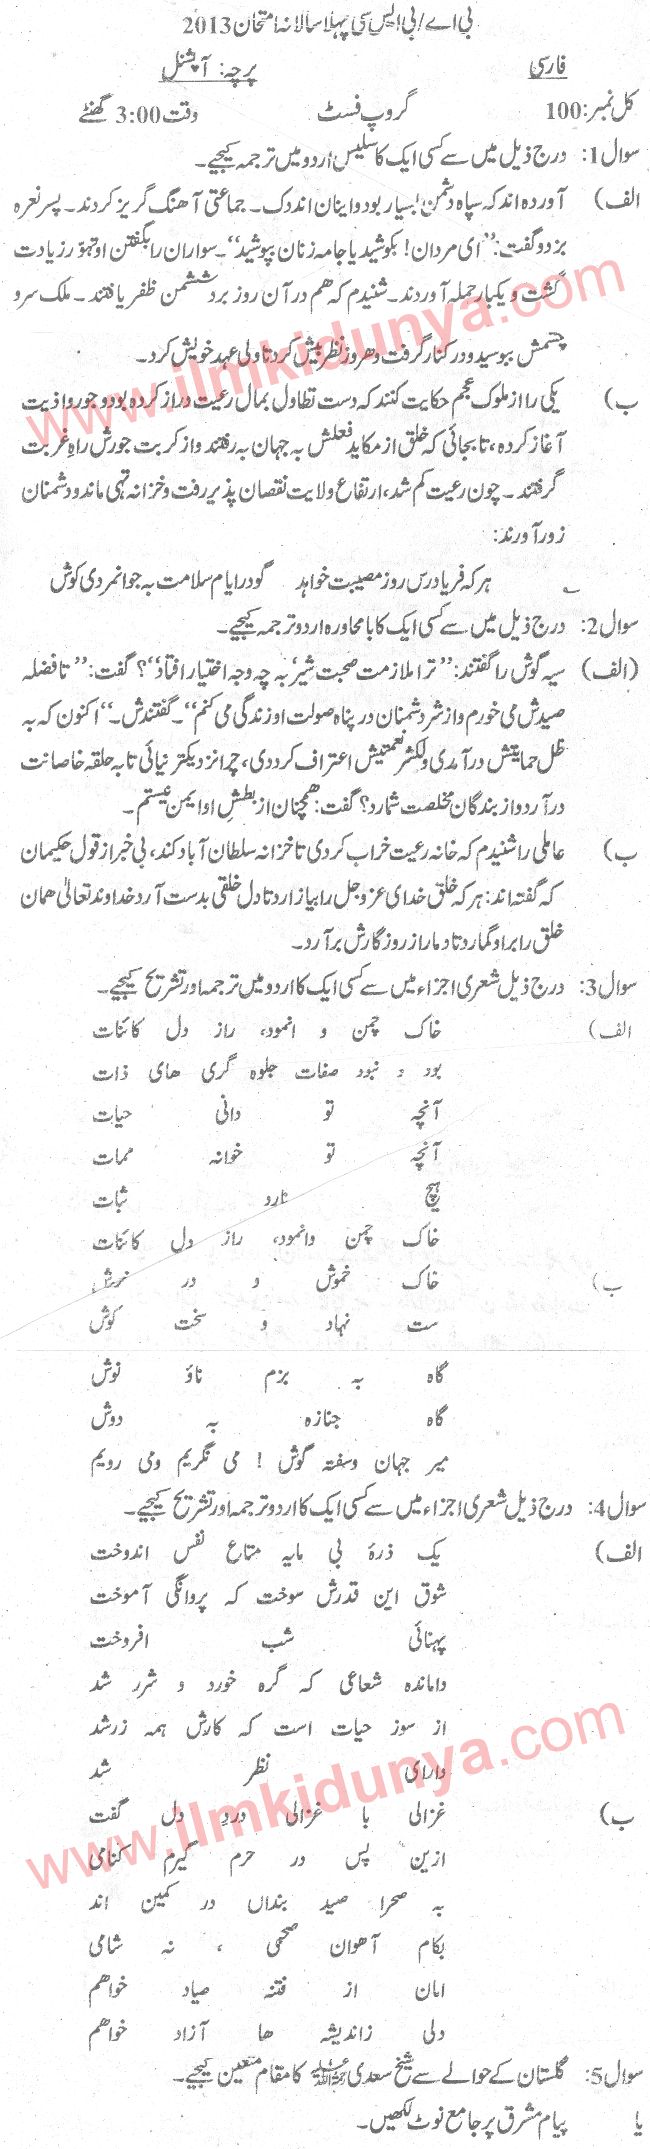 بی اے/بی ایس سی پہلا سالانہ امتحان 2013
فارسی پرچہ: آپشنل
کل نمبر:100 گروپ فسٹ وقت 3:00 گھنٹے
سوال1: درج ذیل میں سے کسی ایک کا سلیس اردو میں ترجمہ کیجیے۔
الف) آوردہ اند کہ سپاہ دشمن بسیار بود و اینان اندک۔ جماعتی آھنگ گریز کردند۔ پسر نعرہ
بزد و گفت: "ای مردان! بکوشید یا جامہ زنان بپوشید"۔ سواران را بگفتن او تہور زیادت
گشت و یکبار حملہ آوردند۔ شنیدم کہ ھم در آن روز بر دششمن ظفر یافتند۔ ملک سرو
چشمش ببوسید و در کنار گرفت و ھر روز نظر بیش کرد تا ولی عہد خویش کرد۔
ب) یکی را از ملوک عجم حکایت کنند کہ دست تطاول بمال رعیت دراز کردہ بود و جور و اذیت
آغاز کردہ، تا بجائی کہ خلق از مکاید فعلش بہ جہان بہ رفتند و از کربت جورش راہ غربت
گرفتند۔ چون رعیت کم شد، ارتفاع ولایت نقصان پذیر رفت و خزانہ تہی ماند و دشمنان
زور آورند:
ہر کہ فریاد رس روز مصیبت خواہد گو در ایام سلامت بہ جوانمردی کوش
سوال2: درج ذیل میں سے کسی ایک کا بامحاورہ اردو ترجمہ کیجیے۔
(الف) سیہ گوش را گفتند: "ترا ملازمت صحبت شیر بہ چہ وجہ اختیار افتاد"؟ گفت: "تا فضلہ
صیدش می خورم و از شر دشمنان در پناہ صولت او زندگی می کنم"۔ گفتندش۔ "اکنون کہ بہ
ظل حمایتش در آمدی و لشکر نعمتیش اعتراف کردی، چرا نزدیکتر نیائی تا بہ حلقہ خاصانت
در آرد و از بندگان مخلصت شمارد؟ گفت: ھمچنان از بطش او ایمن نیستم۔
ب) عاملی را شنیدم کہ خانہ رعیت خراب کردی تا خزانہ سلطان آباد کند، بی خبر از قول حکیمان
کہ گفتہ اند: ہر کہ خلق خدای عزوجل را بیازارد تا دل خلقی بدست آرد خداوند تعالیٰ ھمان
خلق را بر او گمارد تا دمار از روزگارش بر آرد۔
سوال3: درج ذیل شعری اجزاء میں سے کسی ایک کا اردو میں ترجمہ اور تشریح کیجیے۔
الف) خاک چمن و انمود، راز دل کائنات
بود و نبود صفات جلوہ گری ھای ذات
آنچہ تو دانی حیات
آنچہ تو خوانہ ممات
ہیچ نارد ثبات
خاک چمن وانمود، راز دل کائنات
ب) خاک خموش و در خروش
ست نہاد و سخت کوش
گاہ بہ بزم ناؤ نوش
گاہ جنازہ بہ دوش
میر جہان وسفتہ گوش ! می نگریم ومی رویم
سوال4: درج ذیل شعری اجزاء میں سے کسی ایک کا اردو ترجمہ اور تشریح کیجیے۔
الف) یک ذرۂ بی مایہ متاع نفس اندوخت
شوق این قدرش سوخت کہ پروانگی آموخت
پہنائی شب افروخت
داماندہ شعاعی کہ گرہ خورد و شرر شد
از سوز حیات است کہ کارش ہمہ زرشد
دارای نظر شد
ب) غزالی با غزالی درد دل گفت
ازین پس در حرم گیرم کنامی
بہ صحرا صید بنداں در کمین اند
بکام آھوان صحی ، نہ شامی
امان از فتنہ صیاد خواھم
دلی زاندیشہ ھا آزاد خواھم
سوال5: گلستان کے حوالے سے شیخ سعدی رحمۃ اللہ علیہ کا مقام متعین کیجیے۔
یا پیام مشرق پر جامع نوٹ لکھیں۔
www.ilmkidunya.com
www.ilmkidunya.com